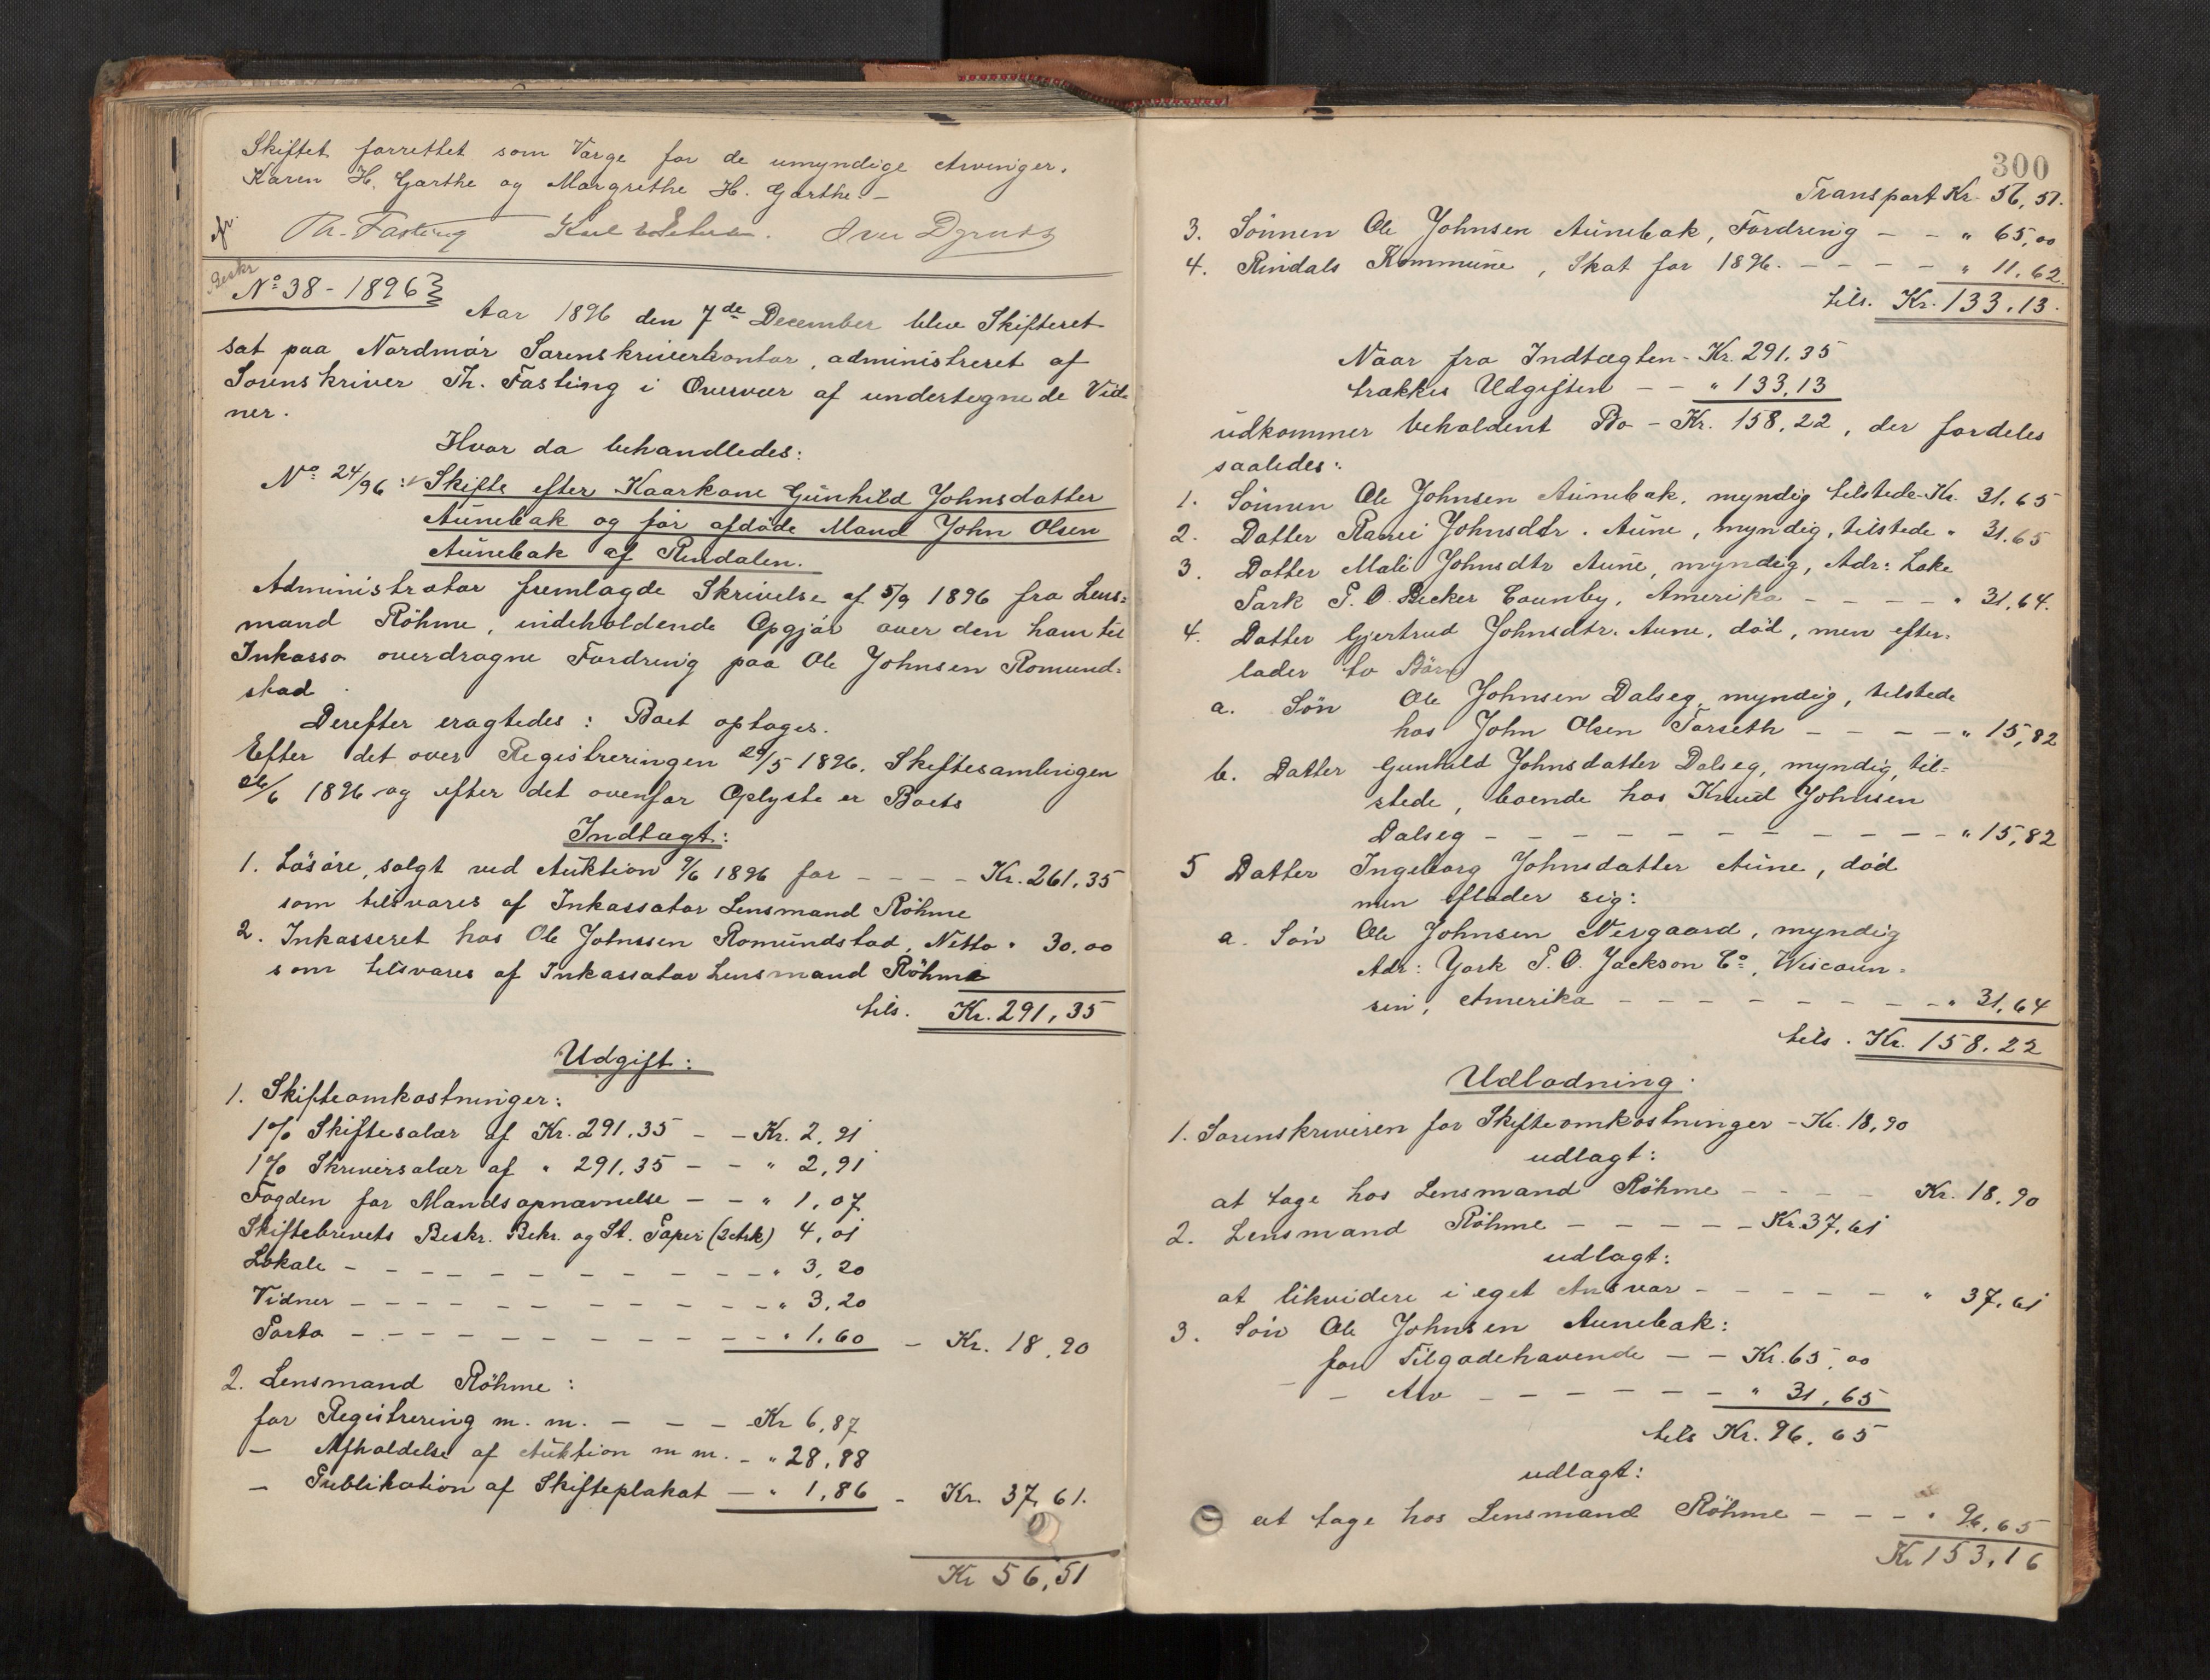 Skiftet forrettet som Værge for de umyndige Arvinger.
Karen H. Garthe og Margrethe H. Garthe. -
Th. Fasting
Beskr
No 38 - 1896
Aar 1896 den 7de December blev Skifteret
sat paa Nordmør Sorenskriverkontor, administreret af
Sorenskriver Th. Fasting i Overvær af undertegnede Vid-
ner.
Hvor da behandledes:
No 24/96: Skifte efter Kaarkone Gunhild Johnsdatter
Aunebak og før afdøde Mand John Olsen
Aunebak af Rindalen.
Administrator fremlagde Skrivelse af 5/9 1896 fra Lens-
mand Röhme, indeholdende Opgjør over den ham til
Inkasso overdragne Fordring paa Ole Johnsen Romund-
stad.
Derefter eragtedes: Boet optages.
Efter det over Registreringen 29/5 1896. Skiftesamlingen
26/6 1896 og efter det ovenfor Oplyste er Boets
Indtægt:
1. Løsøre, solgt ved Auktion 9/6 1896 for - - - - Kr. 261,35
som tilsvares af Inkassator Lensmand Röhme
2. Inkasseret hos Ole Johnssen Romundstad, Netto " 30,00
som tilsvares af Inkassator Lensmand Röhme
tils. Kr. 291,35
Udgift:
1. Skifteomkostninger:
1% Skiftesalær af Kr. 291,35 - - Kr. 2,91
1% Skriversalær af " 291,35 - - " 2,91
Fogden for Mandsopnævnelse - - " 1,07
Skiftebrevets Beskr. Bekr. og St. Papir (2 ark) 4,01
Lokale - - - - - - - - - - " 3,20
Vidner - - - - - - - - - - " 3,20
Porto - - - - - - - - - - " 1,60 - Kr. 18,90
2. Lensmand Röhme:
for Registrering m. m. - - - Kr 6,87
- Afholdelse af Auktion m m. - " 28,88
- Publikation af Skifteplakat - " 1,86 - Kr. 37,61.
Kr 56,51
300
Transport Kr. 56,51.
3. Sønnen Ole Johnsen Aunebak, Fordring - - " 65,00
4. Rindals Kommune, Skat for 1896. - - - - " 11,62.
tils. Kr. 133,13.
Naar fra Indtægten - Kr. 291,35
trækkes Udgiften - - " 133,13
udkommer beholdent Bo - Kr. 158,22, der fordeles
saaledes:
1. Sønnen Ole Johnsen Aunebak, myndig tilstede - Kr. 31,65
2. Datter Rannei Johnsdtr. Aune, myndig, tilstede " 31,65
3. Datter Mali Johnsdtr Aune, myndig, Adr: Lake
Park P. O. Becker Counby, Amerika - - - - " 31,64.
4. Datter Gjertrud Johnsdtr. Aune, død, men efter-
lader to Børn
a. Søn Ole Johnsen Dalseg, myndig, tilstede
hos John Olsen Torseth - - - - " 15,82
b. Datter Gunhild Johnsdatter Dalseg, myndig, til-
stede, boende hos Knud Johnsen
Dalseg - - - - - - - - - - - " 15,82
5 Datter Ingeborg Johnsdatter Aune, død
men eflader sig:
a. Søn Ole Johnsen Nergaard, myndig
Adr: York P. O. Jackson Co., Wiscoun-
sin, Amerika - - - - - - - - " 31,64
tils. Kr. 158,22
Udlodning.
1. Sorenskriveren for Skifteomkostninger - Kr. 18,90
udlagt:
at tage hos Lensmand Röhme - - - - Kr. 18,90
2. Lensmand Röhme - - - - - Kr. 37,61
udlagt:
at likvidere i eget Ansvar - - - - - " 37,61
3. Søn Ole Johnsen Aunebak:
for Tilgodehavende - - Kr. 65,00
- Arv - - - - - - " 31,65
tils Kr. 96,65
udlagt:
at tage hos Lensmand Röhme - - - " 96,65
Kr 153,16